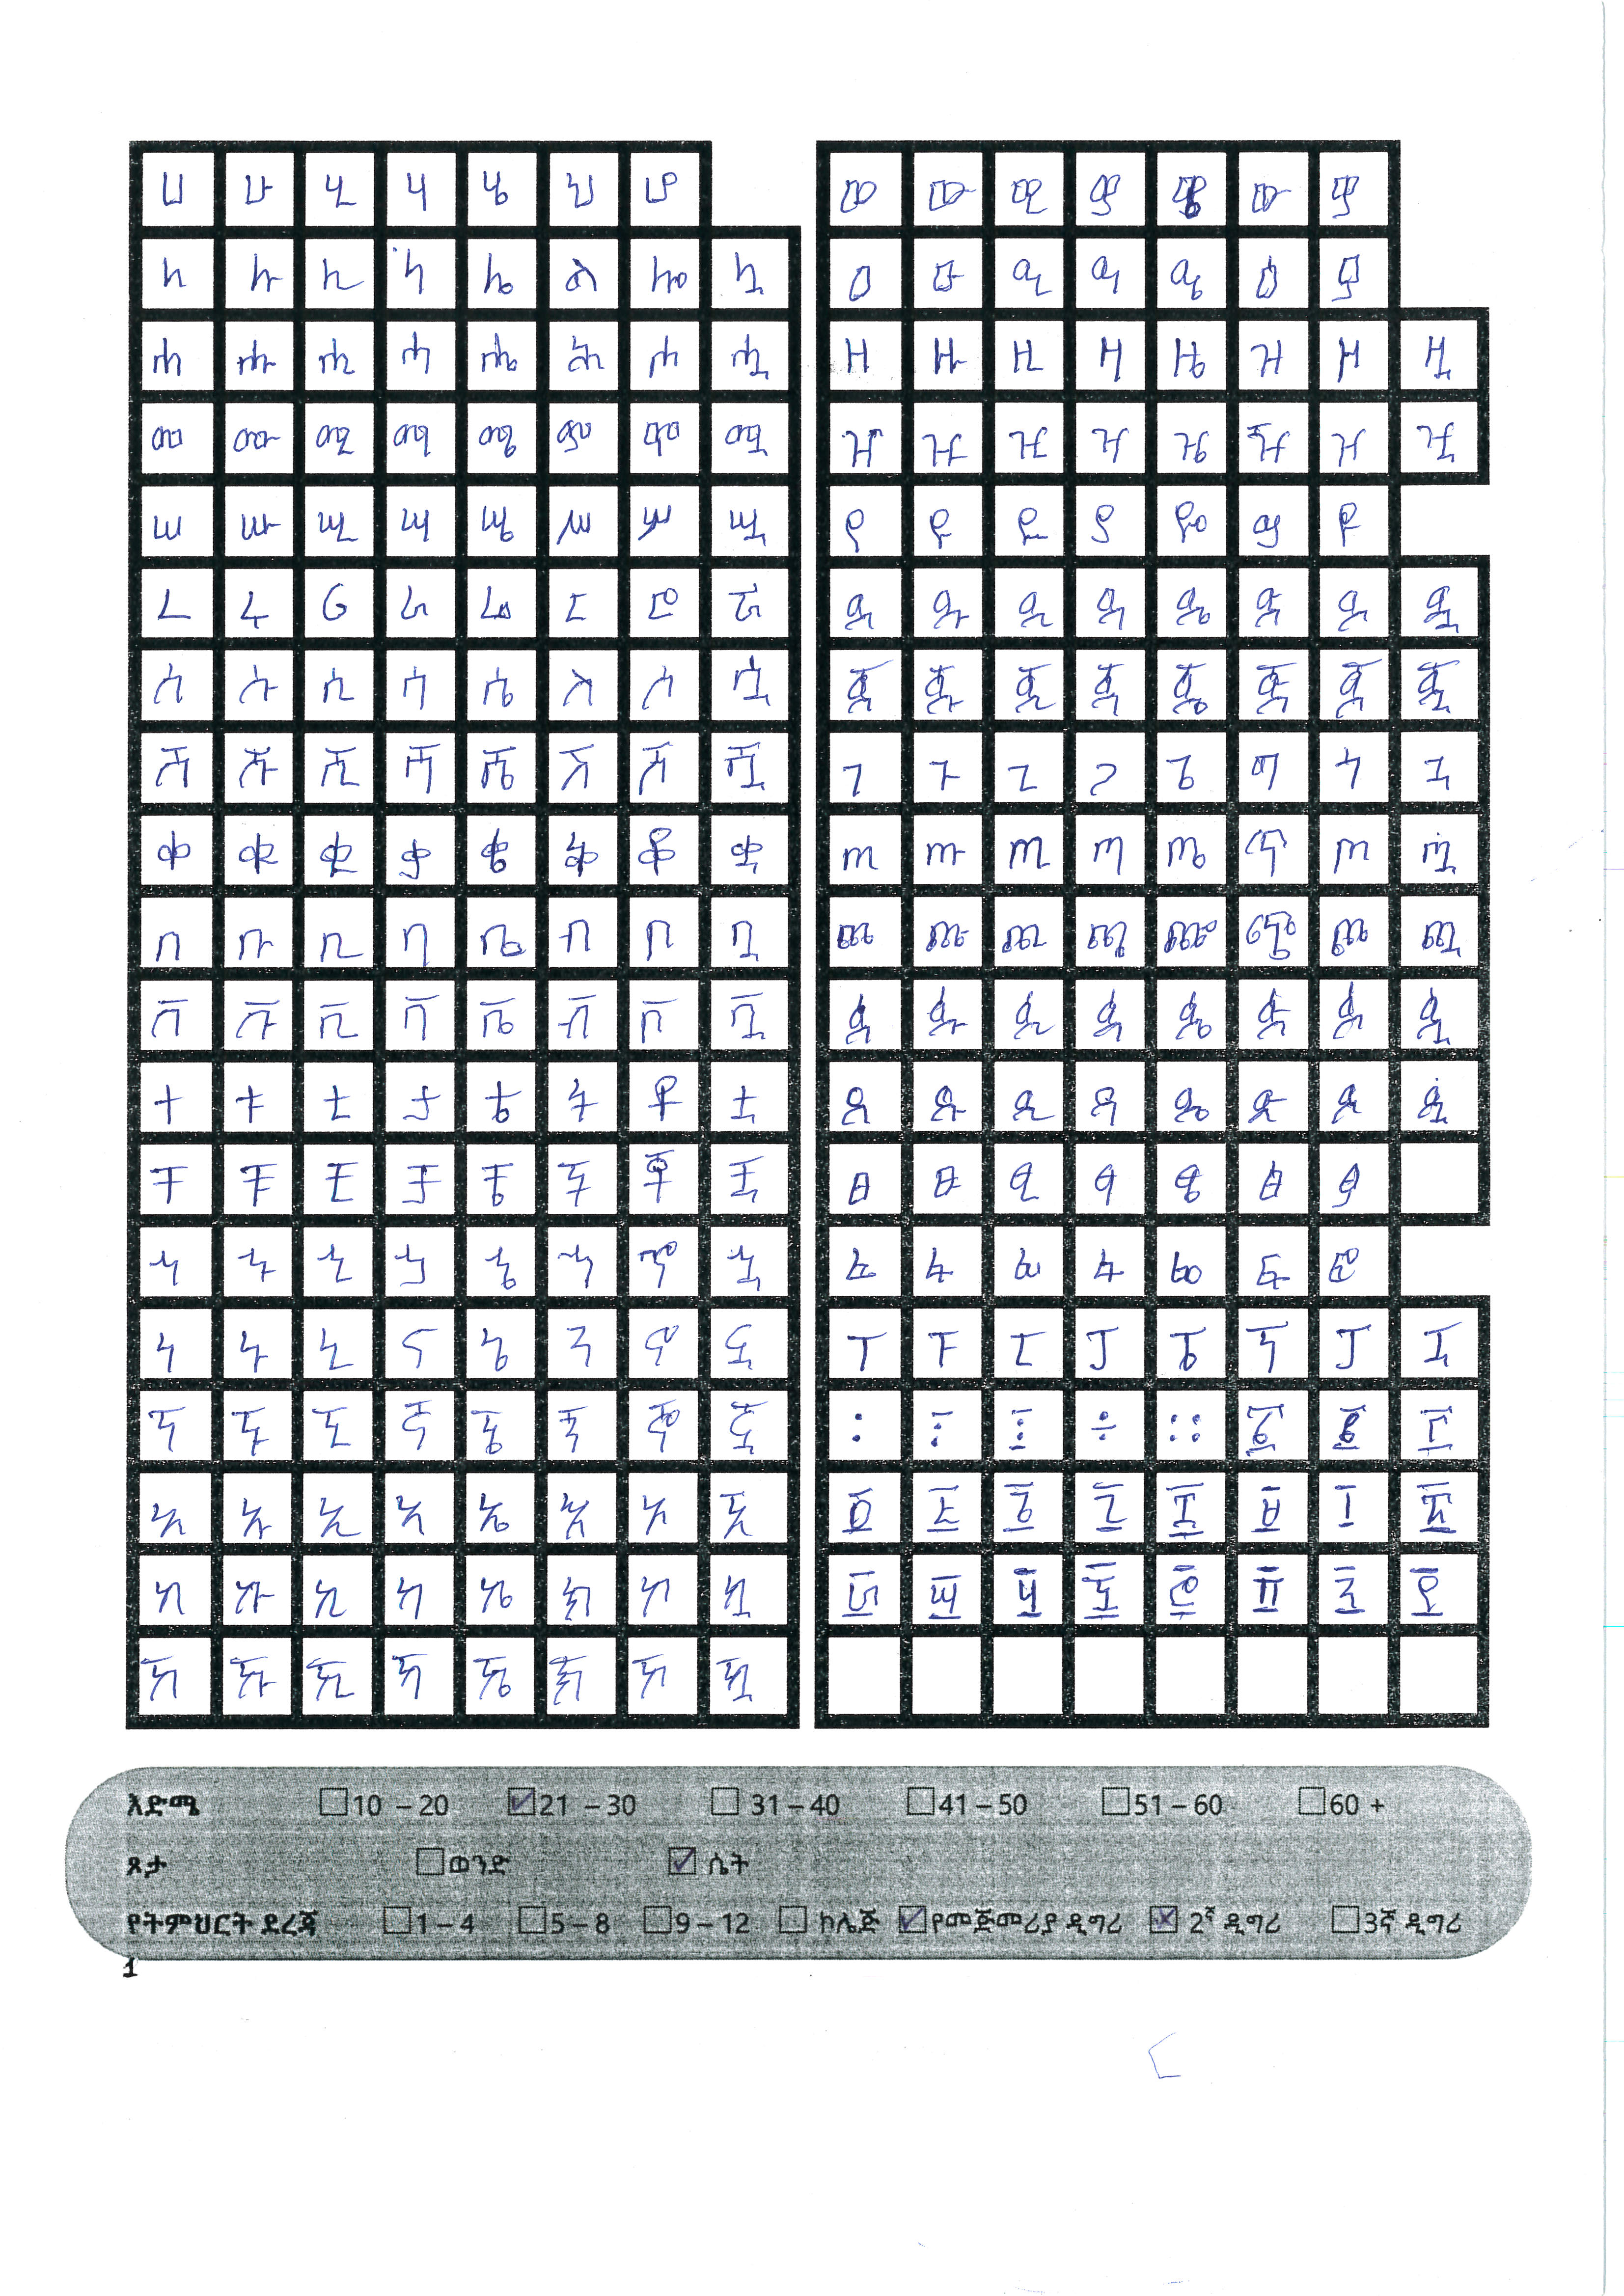 ሀ ሁ ሂ ሃ ሄ ህ ሆ
ለ ሉ ሊ ላ ሌ ል ሎ ሏ
ሐ ሑ ሒ ሓ ሔ ሕ ሖ ሗ
መ ሙ ሚ ማ ሜ ም ሞ ሟ
ሠ ሡ ሢ ሣ ሤ ሥ ሦ ሧ
ረ ሩ ሪ ራ ሬ ር ሮ ሯ
ሰ ሱ ሲ ሳ ሴ ስ ሶ ሷ
ሸ ሹ ሺ ሻ ሼ ሽ ሾ ሿ
ቀ ቁ ቂ ቃ ቄ ቅ ቆ ቋ
በ ቡ ቢ ባ ቤ ብ ቦ ቧ
ቨ ቩ ቪ ቫ ቬ ቭ ቮ ቯ
ተ ቱ ቲ ታ ቴ ት ቶ ቷ
ቸ ቹ ቺ ቻ ቼ ች ቾ ቿ
ኀ ኁ ኂ ኃ ኄ ኅ ኆ ኋ
ነ ኑ ኒ ና ኔ ን ኖ ኗ
ኘ ኙ ኚ ኛ ኜ ኝ ኞ ኟ
አ ኡ ኢ ኣ ኤ እ ኦ ኧ
ከ ኩ ኪ ካ ኬ ክ ኮ ኳ
ኸ ኹ ኺ ኻ ኼ ኽ ኾ ዃ
ወ ዉ ዊ ዋ ዌ ው ዎ
ዐ ዑ ዒ ዓ ዔ ዕ ዖ
ዘ ዙ ዚ ዛ ዜ ዝ ዞ ዟ
ዠ ዡ ዢ ዣ ዤ ዥ ዦ ዧ
የ ዩ ዪ ያ ዬ ይ ዮ
ደ ዱ ዲ ዳ ዴ ድ ዶ ዷ
ጀ ጁ ጂ ጃ ጄ ጅ ጆ ጇ
ገ ጉ ጊ ጋ ጌ ግ ጎ ጓ
ጠ ጡ ጢ ጣ ጤ ጥ ጦ ጧ
ጨ ጩ ጪ ጫ ጬ ጭ ጮ ጯ
ጰ ጱ ጲ ጳ ጴ ጵ ጶ ጷ
ጸ ጹ ጺ ጻ ጼ ጽ ጾ ጿ
ፀ ፁ ፂ ፃ ፄ ፅ ፆ
ፈ ፉ ፊ ፋ ፌ ፍ ፎ
ፐ ፑ ፒ ፓ ፔ ፕ ፖ ፗ
፡ ፣ ፤ ÷ ፡፡ ፩ ፪ ፫
፬ ፭ ፮ ፯ ፰ ፱ ፲ ፳
፴ ፵ ፶ ፷ ፸ ፹ ፺ ፻
እድሜ 10 – 20 21 – 30 31 – 40 41 – 50 51 – 60 60 +
ጾታ ወንድ ሴት
የትምህርት ደረጃ 1 – 4 5 – 8 9 – 12 ኮሌጅ የመጀመሪያ ዲግሪ 2ኛ ዲግሪ 3ኛ ዲግሪ
1